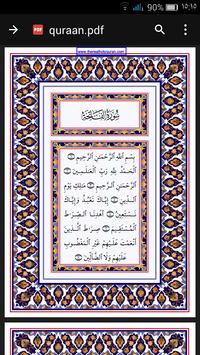 ١٥:١٥
quraan.pdf
PDF
سُورَةُ الفَاتِحَةِ
بِسْمِ اللَّهِ الرَّحْمَٰنِ الرَّحِيمِ ۝
الْحَمْدُ لِلَّهِ رَبِّ الْعَالَمِينَ ۝
الرَّحْمَٰنِ الرَّحِيمِ ۝ مَالِكِ يَوْمِ
الدِّينِ ۝ إِيَّاكَ نَعْبُدُ وَإِيَّاكَ
نَسْتَعِينُ ۝ اهْدِنَا الصِّرَاطَ
الْمُسْتَقِيمَ ۝ صِرَاطَ الَّذِينَ
أَنْعَمْتَ عَلَيْهِمْ غَيْرِ الْمَغْضُوبِ
عَلَيْهِمْ وَلَا الضَّالِّينَ ۝